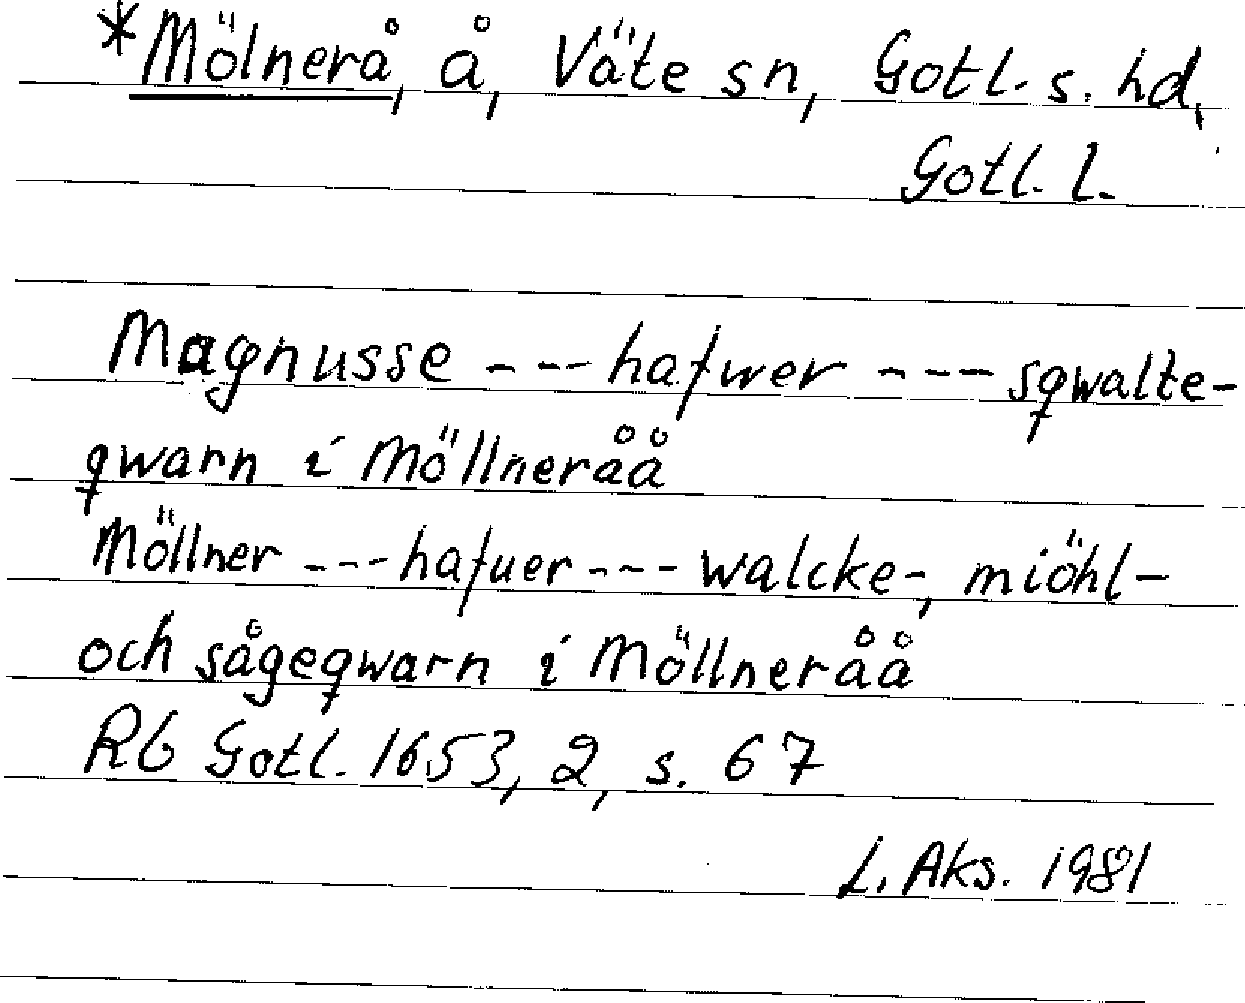 *Mölnerå, å, Väte sn, Gotl. s. hd,
Gotl. l.
Magnusse --- hafwer --- sqwalte-
qwarn i Möllneråå
Möllner --- hafuer --- walcke-, miöhl-
och sågeqwarn i Möllneråå
Rb Gotl. 1653, 2, s. 67
L. Aks. 1981